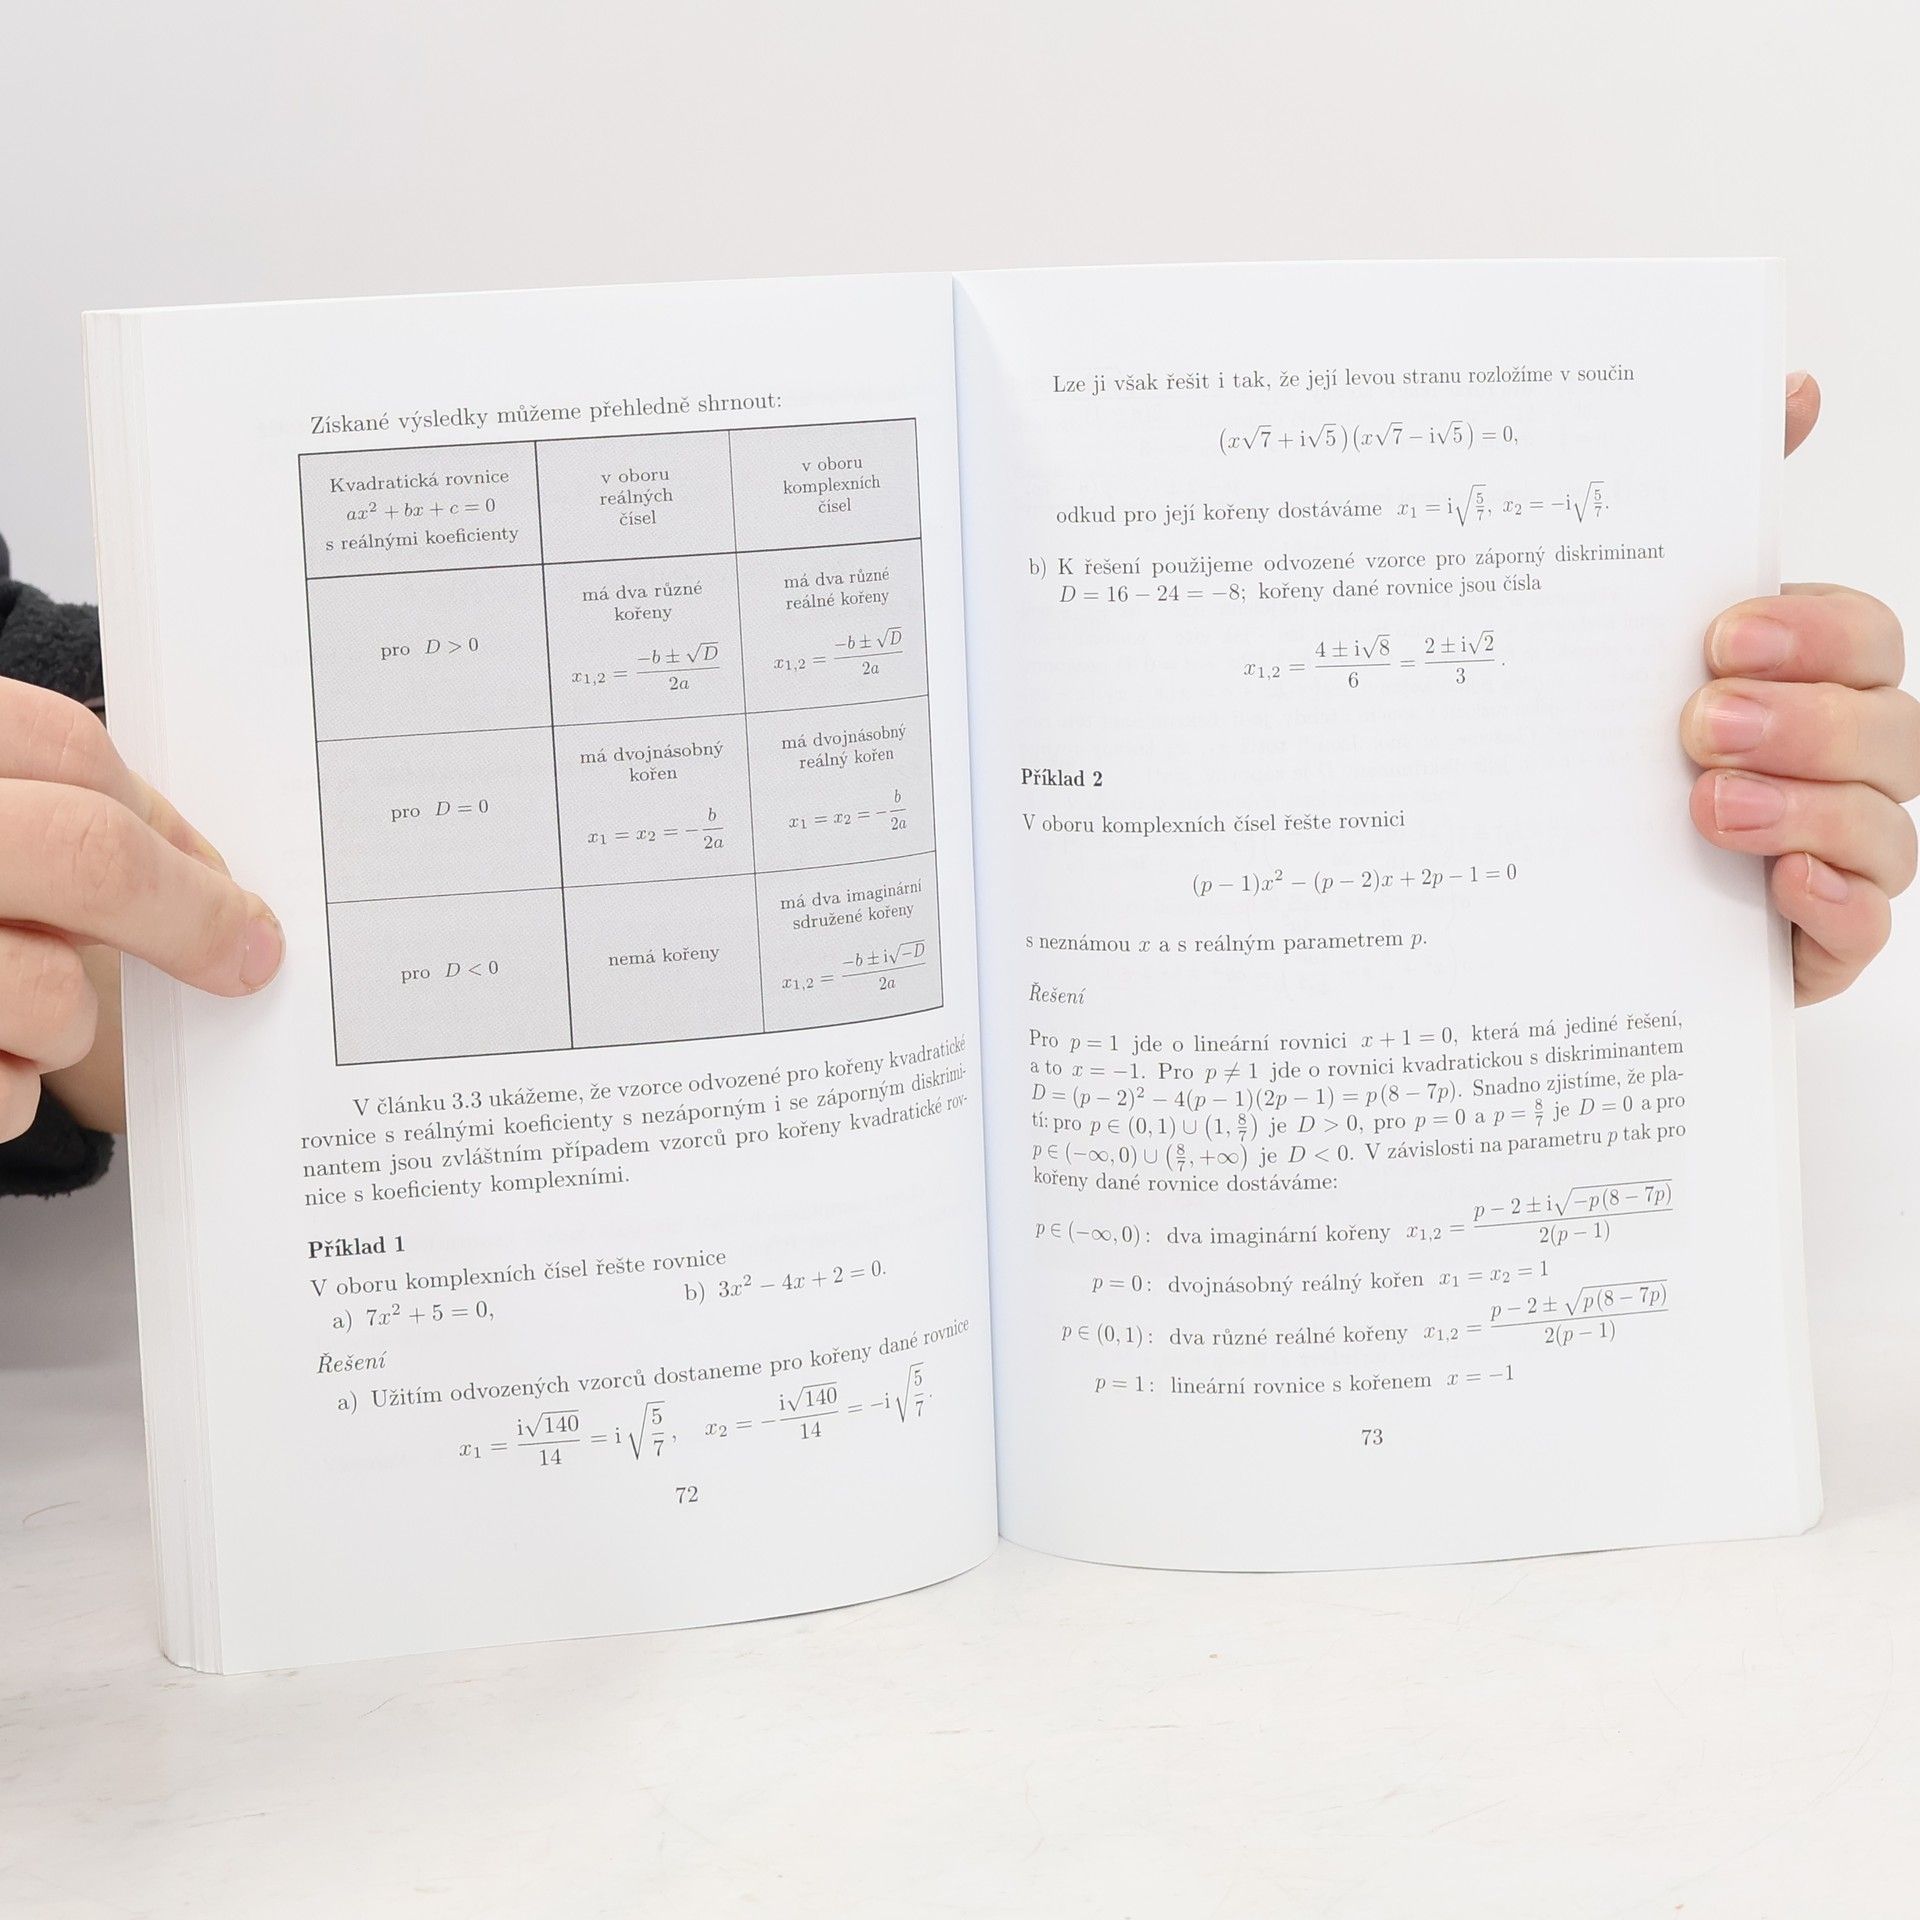 Získané výsledky můžeme přehledně shrnout:
Kvadratická rovnice
ax² + bx + c = 0
s reálnými koeficienty
v oboru
reálných
čísel
v oboru
komplexních
čísel
pro D > 0
má dva různé
kořeny
x₁,₂ = (−b ± √D)/(2a)
má dva různé
reálné kořeny
x₁,₂ = (−b ± √D)/(2a)
pro D = 0
má dvojnásobný
kořen
x₁ = x₂ = −b/(2a)
má dvojnásobný
reálný kořen
x₁ = x₂ = −b/(2a)
pro D < 0
nemá kořeny
má dva imaginární
sdružené kořeny
x₁,₂ = (−b ± i√(−D))/(2a)
V článku 3.3 ukážeme, že vzorce odvozené pro kořeny kvadratické
rovnice s reálnými koeficienty s nezáporným i se záporným diskrimi-
nantem jsou zvláštním případem vzorců pro kořeny kvadratické rov-
nice s koeficienty komplexními.
Příklad 1
V oboru komplexních čísel řešte rovnice
a) 7x² + 5 = 0, b) 3x² − 4x + 2 = 0.
Řešení
a) Užitím odvozených vzorců dostaneme pro kořeny dané rovnice
x₁ = i√140/14 = i√(5/7), x₂ = −i√140/14 = −i√(5/7).
72
Lze ji však řešit i tak, že její levou stranu rozložíme v součin
(x√7 + i√5)(x√7 − i√5) = 0,
odkud pro její kořeny dostáváme x₁ = i√(5/7), x₂ = −i√(5/7).
b) K řešení použijeme odvozené vzorce pro záporný diskriminant
D = 16 − 24 = −8; kořeny dané rovnice jsou čísla
x₁,₂ = (4 ± i√8)/6 = (2 ± i√2)/3.
Příklad 2
V oboru komplexních čísel řešte rovnici
(p − 1)x² − (p − 2)x + 2p − 1 = 0
s neznámou x a s reálným parametrem p.
Řešení
Pro p = 1 jde o lineární rovnici x + 1 = 0, která má jediné řešení,
a to x = −1. Pro p ≠ 1 jde o rovnici kvadratickou s diskriminantem
D = (p − 2)² − 4(p − 1)(2p − 1) = p(8 − 7p). Snadno zjistíme, že pla-
tí: pro p ∈ (0, 1) ∪ (1, 8/7) je D > 0, pro p = 0 a p = 8/7 je D = 0 a pro
p ∈ (−∞, 0) ∪ (8/7, +∞) je D < 0. V závislosti na parametru p tak pro
kořeny dané rovnice dostáváme:
p ∈ (−∞, 0): dva imaginární kořeny x₁,₂ = (p − 2 ± i√(−p(8 − 7p)))/(2(p − 1))
p = 0: dvojnásobný reálný kořen x₁ = x₂ = 1
p ∈ (0, 1): dva různé reálné kořeny x₁,₂ = (p − 2 ± √(p(8 − 7p)))/(2(p − 1))
p = 1: lineární rovnice s kořenem x = −1
73